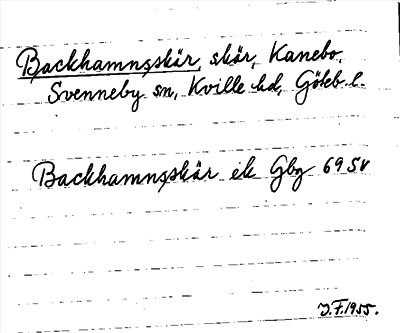 Backhamnsskär, skär, Kanebo,
Svenneby sn, Kville hd, Göteb. l.
Backhamnsskär ek Gbg 69 SV
J.F. 1955.